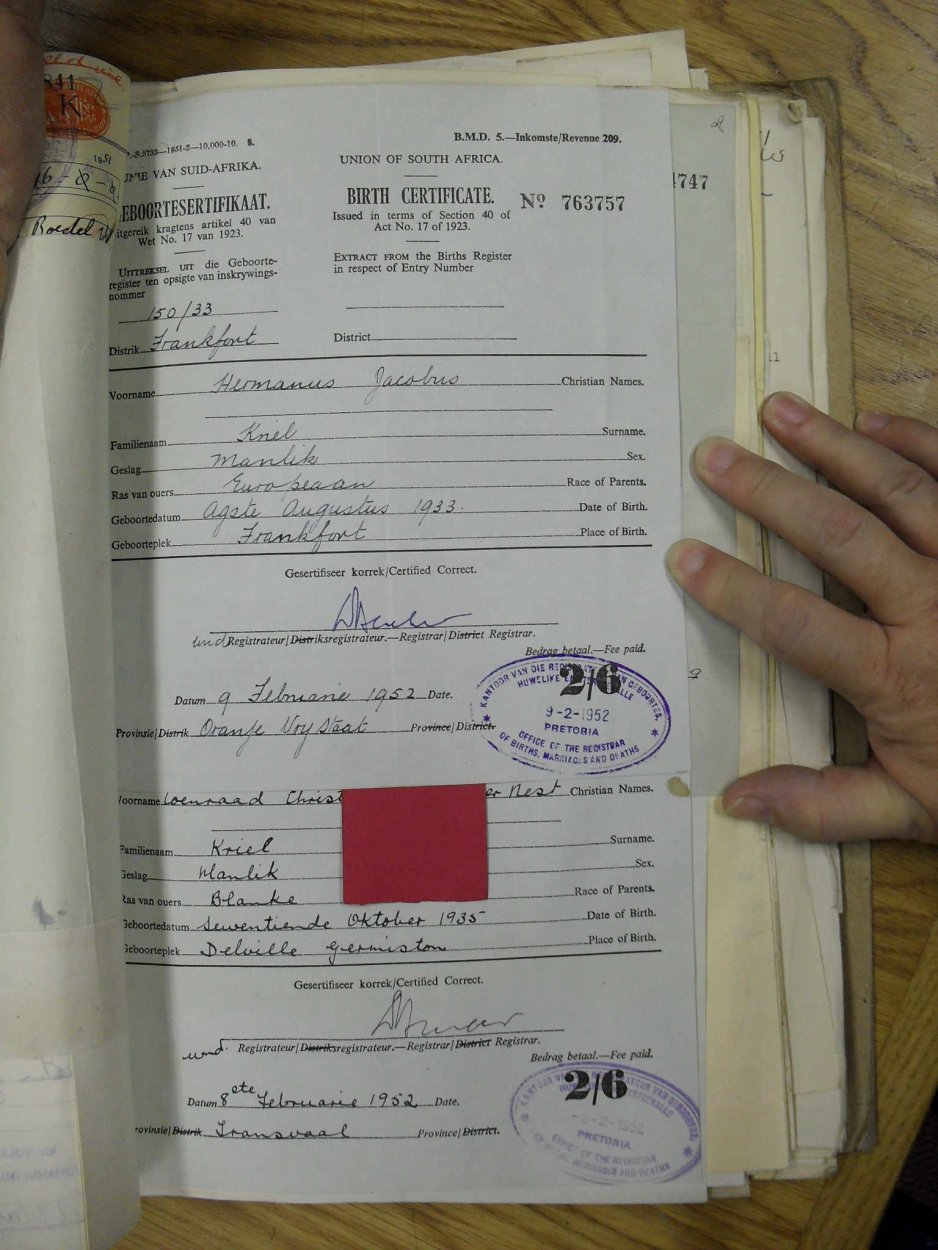 841
K
1951
16-8-
Boedel
S.5733—1951-2—10,000-10. S.
B.M.D. 5.—Inkomste/Revenue 209.
UNIE VAN SUID-AFRIKA.
UNION OF SOUTH AFRICA.
GEBOORTESERTIFIKAAT.
BIRTH CERTIFICATE.
No 763757
4747
Uitgereik kragtens artikel 40 van
Wet No. 17 van 1923.
Issued in terms of Section 40 of
Act No. 17 of 1923.
UITTREKSEL UIT die Geboorte-
register ten opsigte van inskrywings-
nommer
EXTRACT FROM the Births Register
in respect of Entry Number
150/33
Distrik Frankfort District
Voorname Hermanus Jacobus Christian Names.
Familienaam Kriel Surname.
Geslag Manlik Sex.
Ras van ouers Europeaan Race of Parents.
Geboortedatum Agste Augustus 1933. Date of Birth.
Geboorteplek Frankfort Place of Birth.
Gesertifiseer korrek/Certified Correct.
Registrateur/Distriksregistrateur.—Registrar/District Registrar.
Bedrag betaal.—Fee paid.
2/6
KANTOOR VAN DIE REGISTRATEUR VAN GEBOORTES,
HUWELIKE EN STERFGEVALLE
9-2-1952
PRETORIA
OFFICE OF THE REGISTRAR
OF BIRTHS, MARRIAGES AND DEATHS
Datum 9 Februarie 1952 Date.
Provinsie/Distrik Oranje Vry Staat Province/District.
Voorname Coenraad Christ er Nest Christian Names.
Familienaam Kriel Surname.
Geslag Manlik Sex.
Ras van ouers Blanke Race of Parents.
Geboortedatum Sewentiende Oktober 1935 Date of Birth.
Geboorteplek Delville Germiston Place of Birth.
Gesertifiseer korrek/Certified Correct.
Registrateur/Distriksregistrateur.—Registrar/District Registrar.
Bedrag betaal.—Fee paid.
2/6
PRETORIA
OFFICE OF THE REGISTRAR
OF BIRTHS, MARRIAGES AND DEATHS
Datum 8ste Februarie 1952 Date.
Provinsie/Distrik Transvaal Province/District.